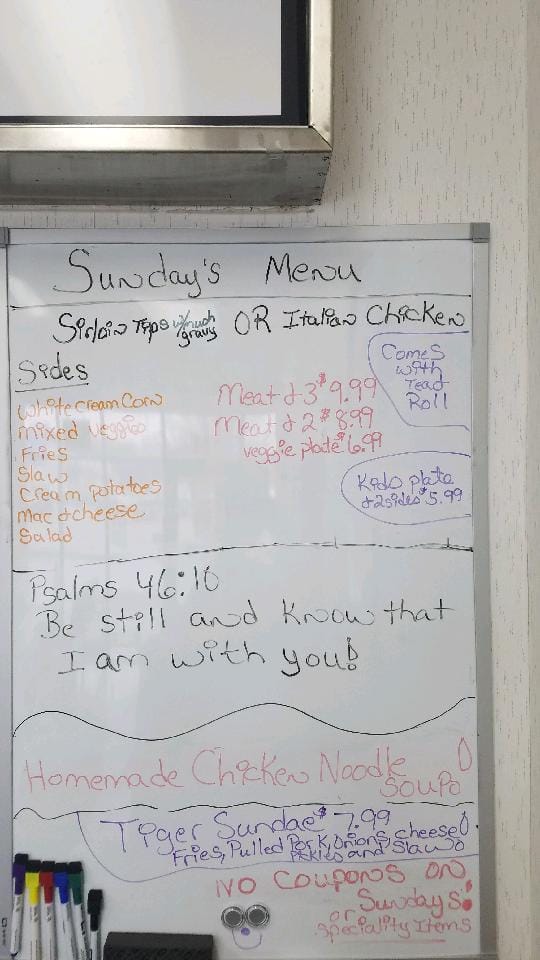 Sunday's Menu
Sirloin Tips w/mush gravy OR Italian Chicken
Sides
white cream Corn
mixed veggies
Fries
Slaw
Cream potatoes
Mac & cheese
Salad
Meat & 3 $9.99
Meat & 2 $8.99
veggie plate $6.99
Comes
with
Tea &
Roll
Kids plate
& 2 sides $5.99
Psalms 46:10
Be still and know that
I am with you!
Homemade Chicken Noodle
Soup!
Tiger Sundae $7.99
Fries, Pulled Pork, Onions, cheese
Pickles and Slaw!
NO COUPONS ON
Sunday's!
or
Speciality Items